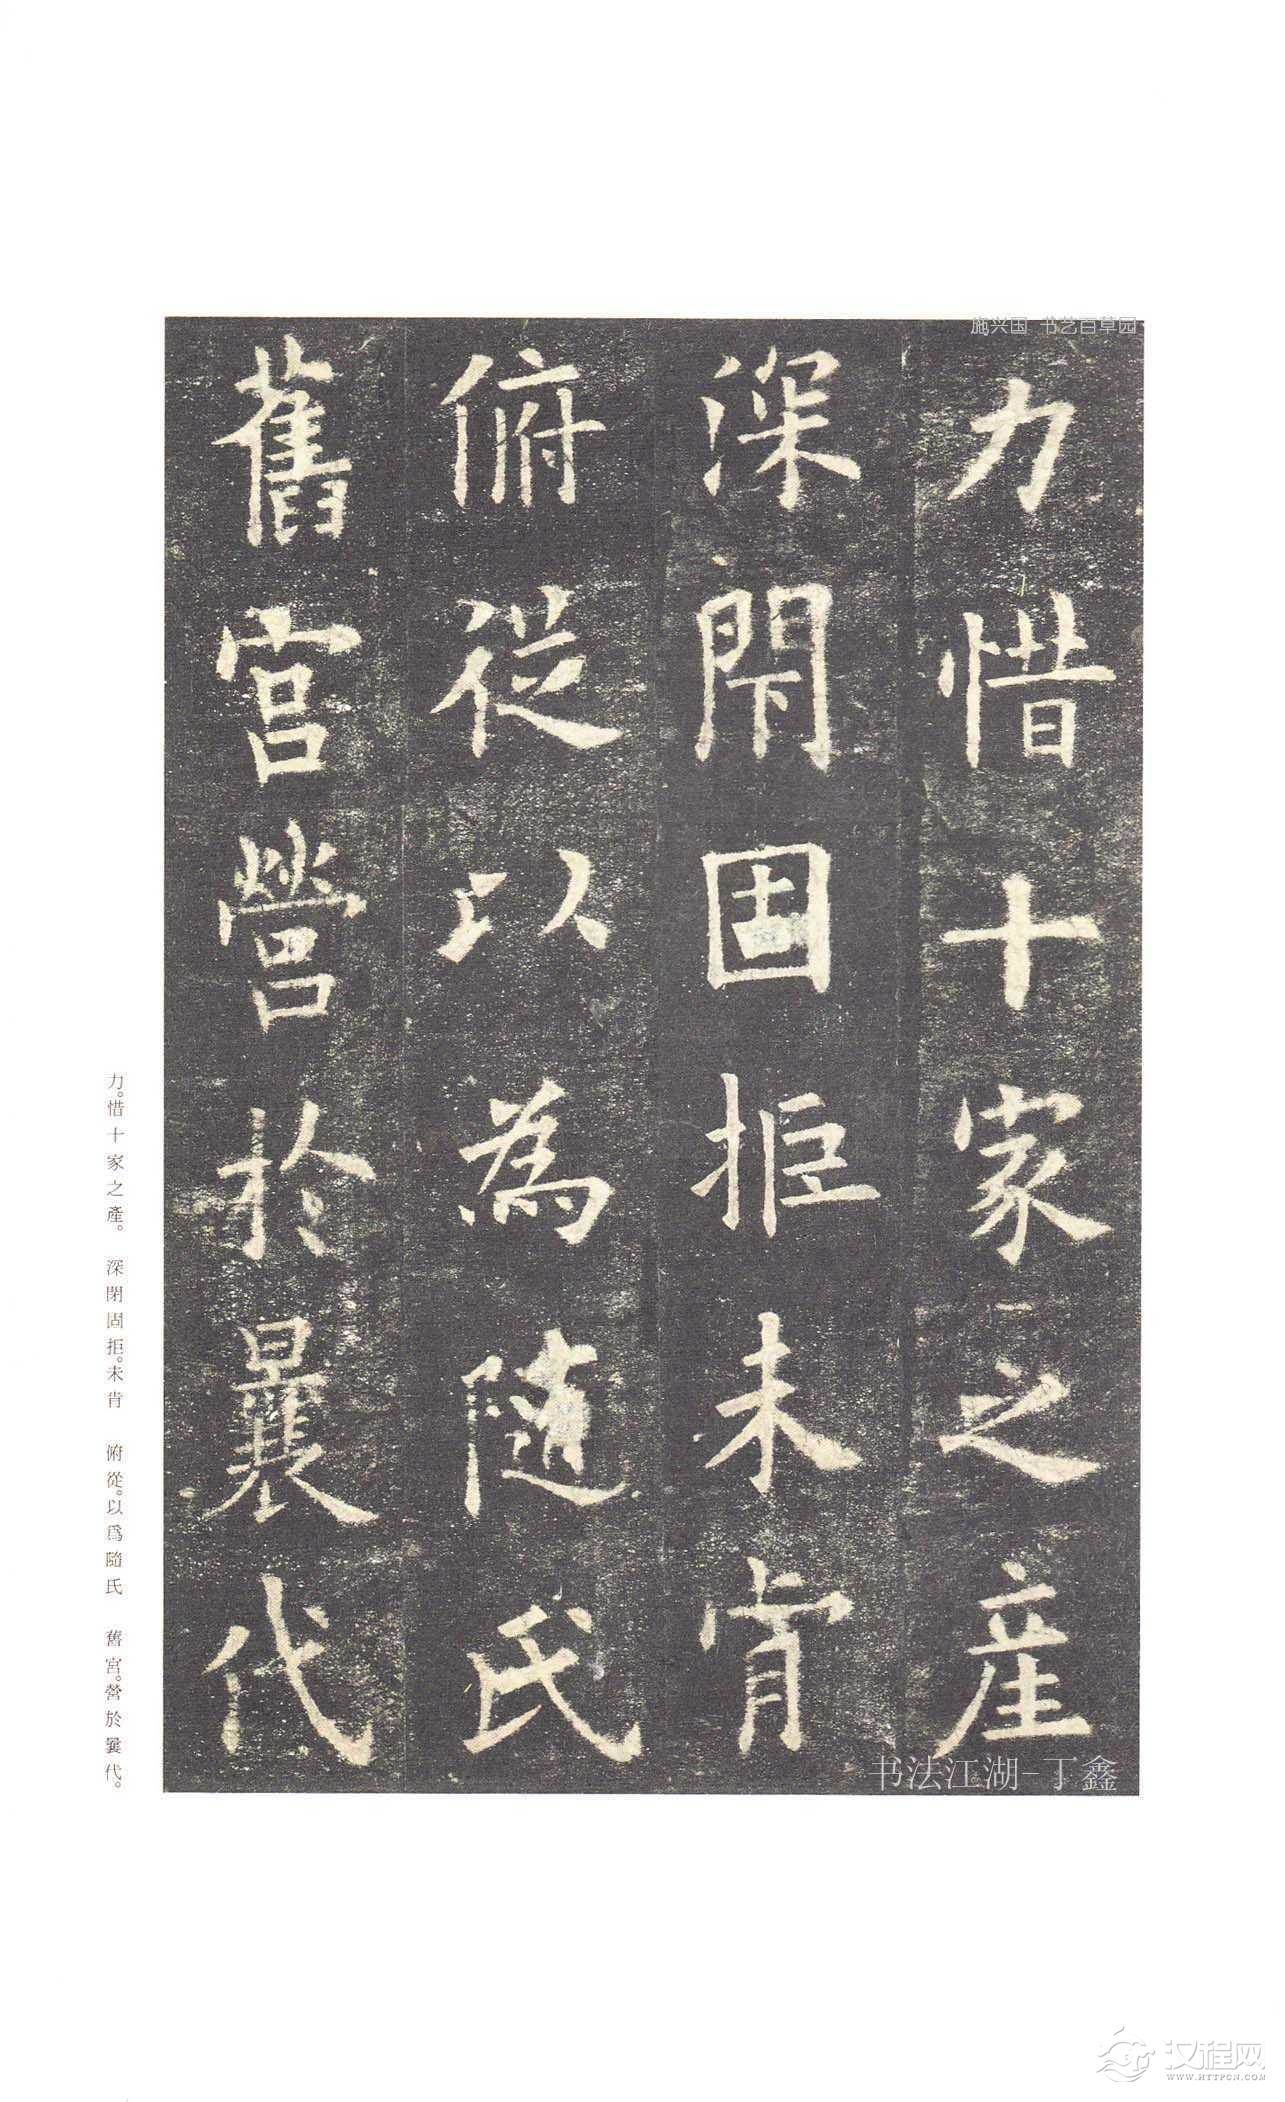 施兴国 书艺百草园
力惜十家之産
深閇固拒未肯
俯從以為隨氏
舊宮營於曩代
力。惜十家之產。 深閉固拒。未肯 俯從。以爲隨氏 舊宮。營於曩代。
书法江湖-丁鑫
汉程网
WWW.HTTPCN.COM